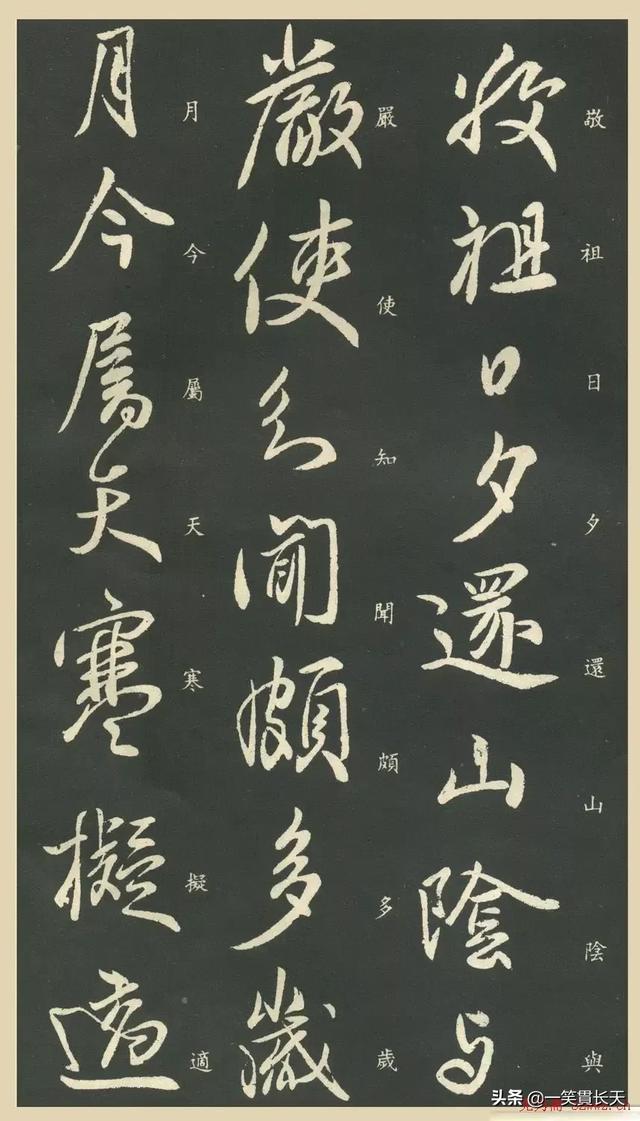 敬祖日夕還山陰與
敬祖日夕還山陰与
嚴使知聞頗多歲
嚴使知聞頗多歲
月今屬天寒擬適
月今屬天寒擬適
头条 @一笑貫长天